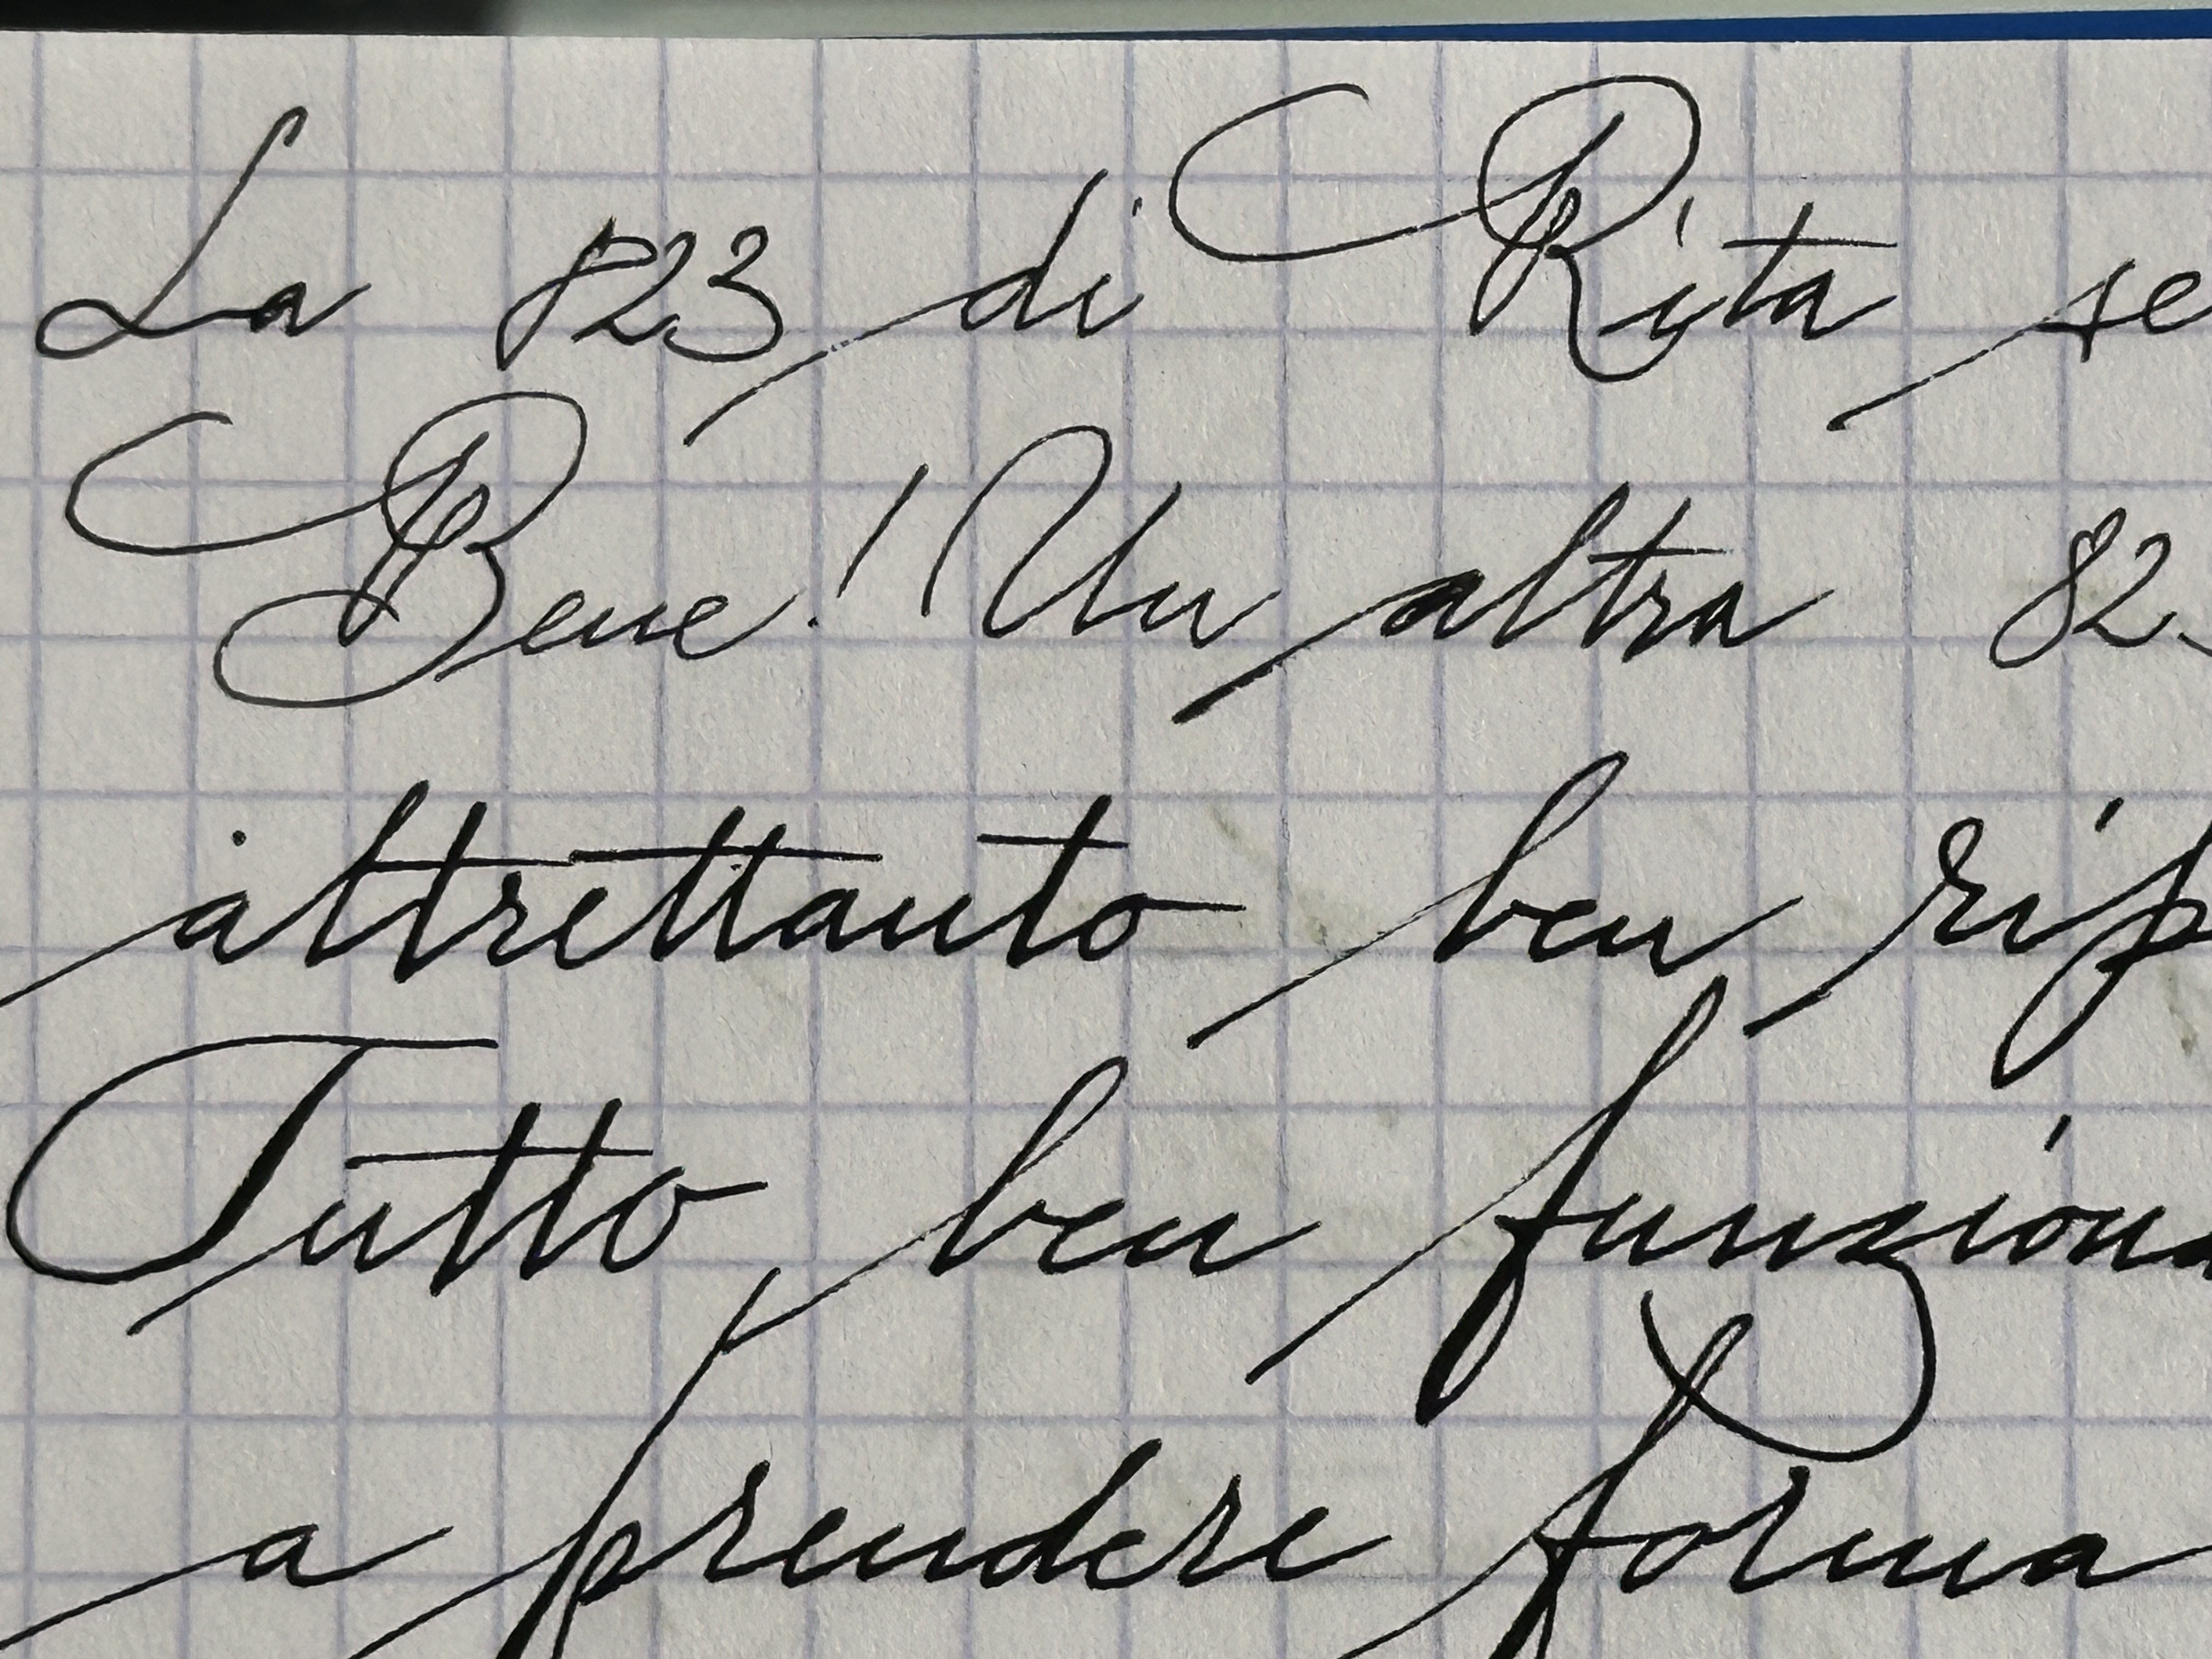 La 823 di Rita se
Bene! Un altra 82
altrettanto ben rip
Tutto ben funziona
a prendere forma